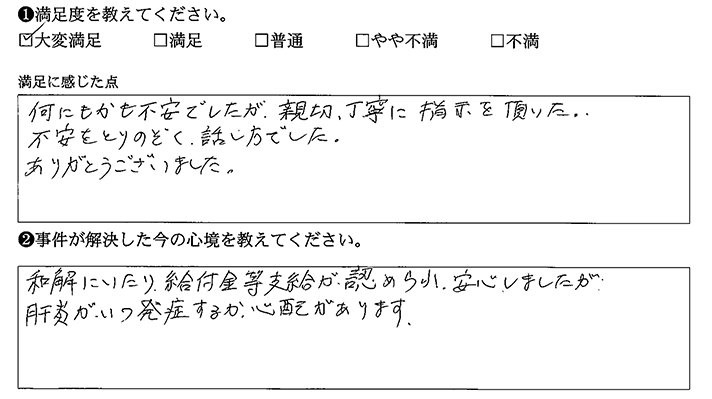 ❶満足度を教えてください。
☑大変満足 □満足 □普通 □やや不満 □不満
満足に感じた点
何にもかも不安でしたが、親切、丁寧に指示を頂いた。
不安をとりのぞく、話し方でした。
ありがとうございました。
❷事件が解決した今の心境を教えてください。
和解にいたり、給付金等支給が、認められ、安心しましたが
肝炎が、いつ発症するか、心配があります。